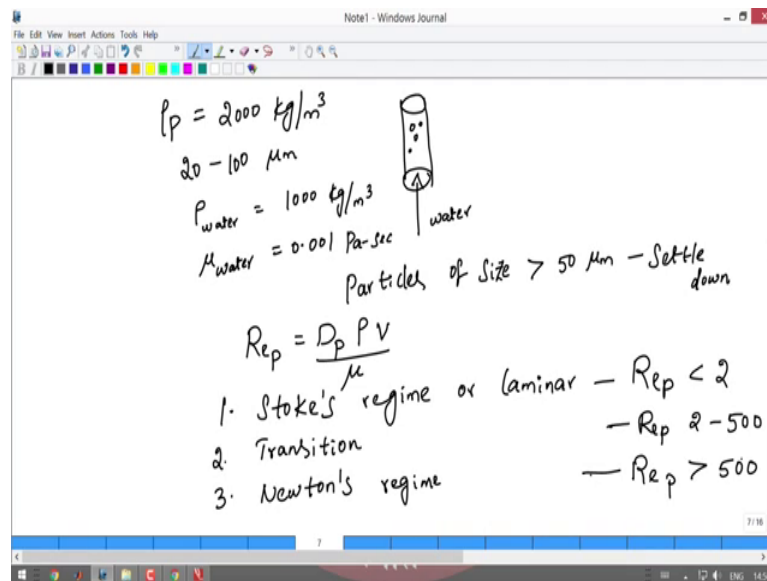 Note1 - Windows Journal
File Edit View Insert Actions Tools Help
ρp = 2000 kg/m³
20 - 100 μm
ρwater = 1000 kg/m³
μwater = 0.001 Pa-sec
water
Particles of Size > 50 μm - Settle
down
Rep = Dp ρ V / μ
1. Stoke's regime or laminar - Rep < 2
2. Transition - Rep 2 - 500
3. Newton's regime - Rep > 500
7/16
7
ENG